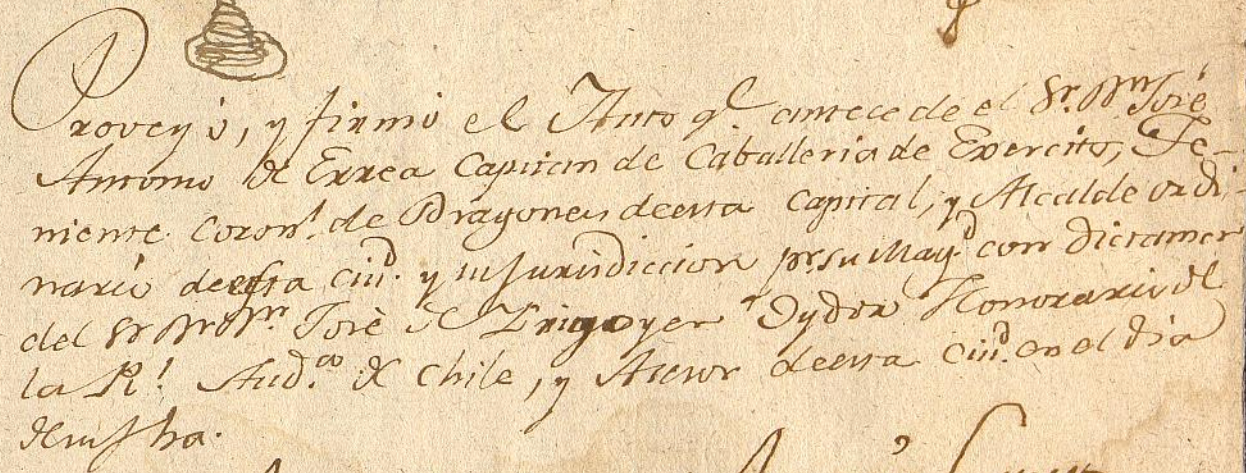 Proveyó, y firmó el Auto q.e antecede el Sr. Dn José
Antonio de Errea Capitan de Caballeria de Exercito, Te-
niente Coron.l de Dragones deesta Capital, y Alcalde ordi-
nario deesta Ciud. y su Jurisdiccion pr. su Mag.d con dictamen
del Sr Dr Dn José de Irigoyen Oydor Honorario de
la Rl. Aud.a de Chile, y Asesor deesta Ciud. en el dia
desu fha.